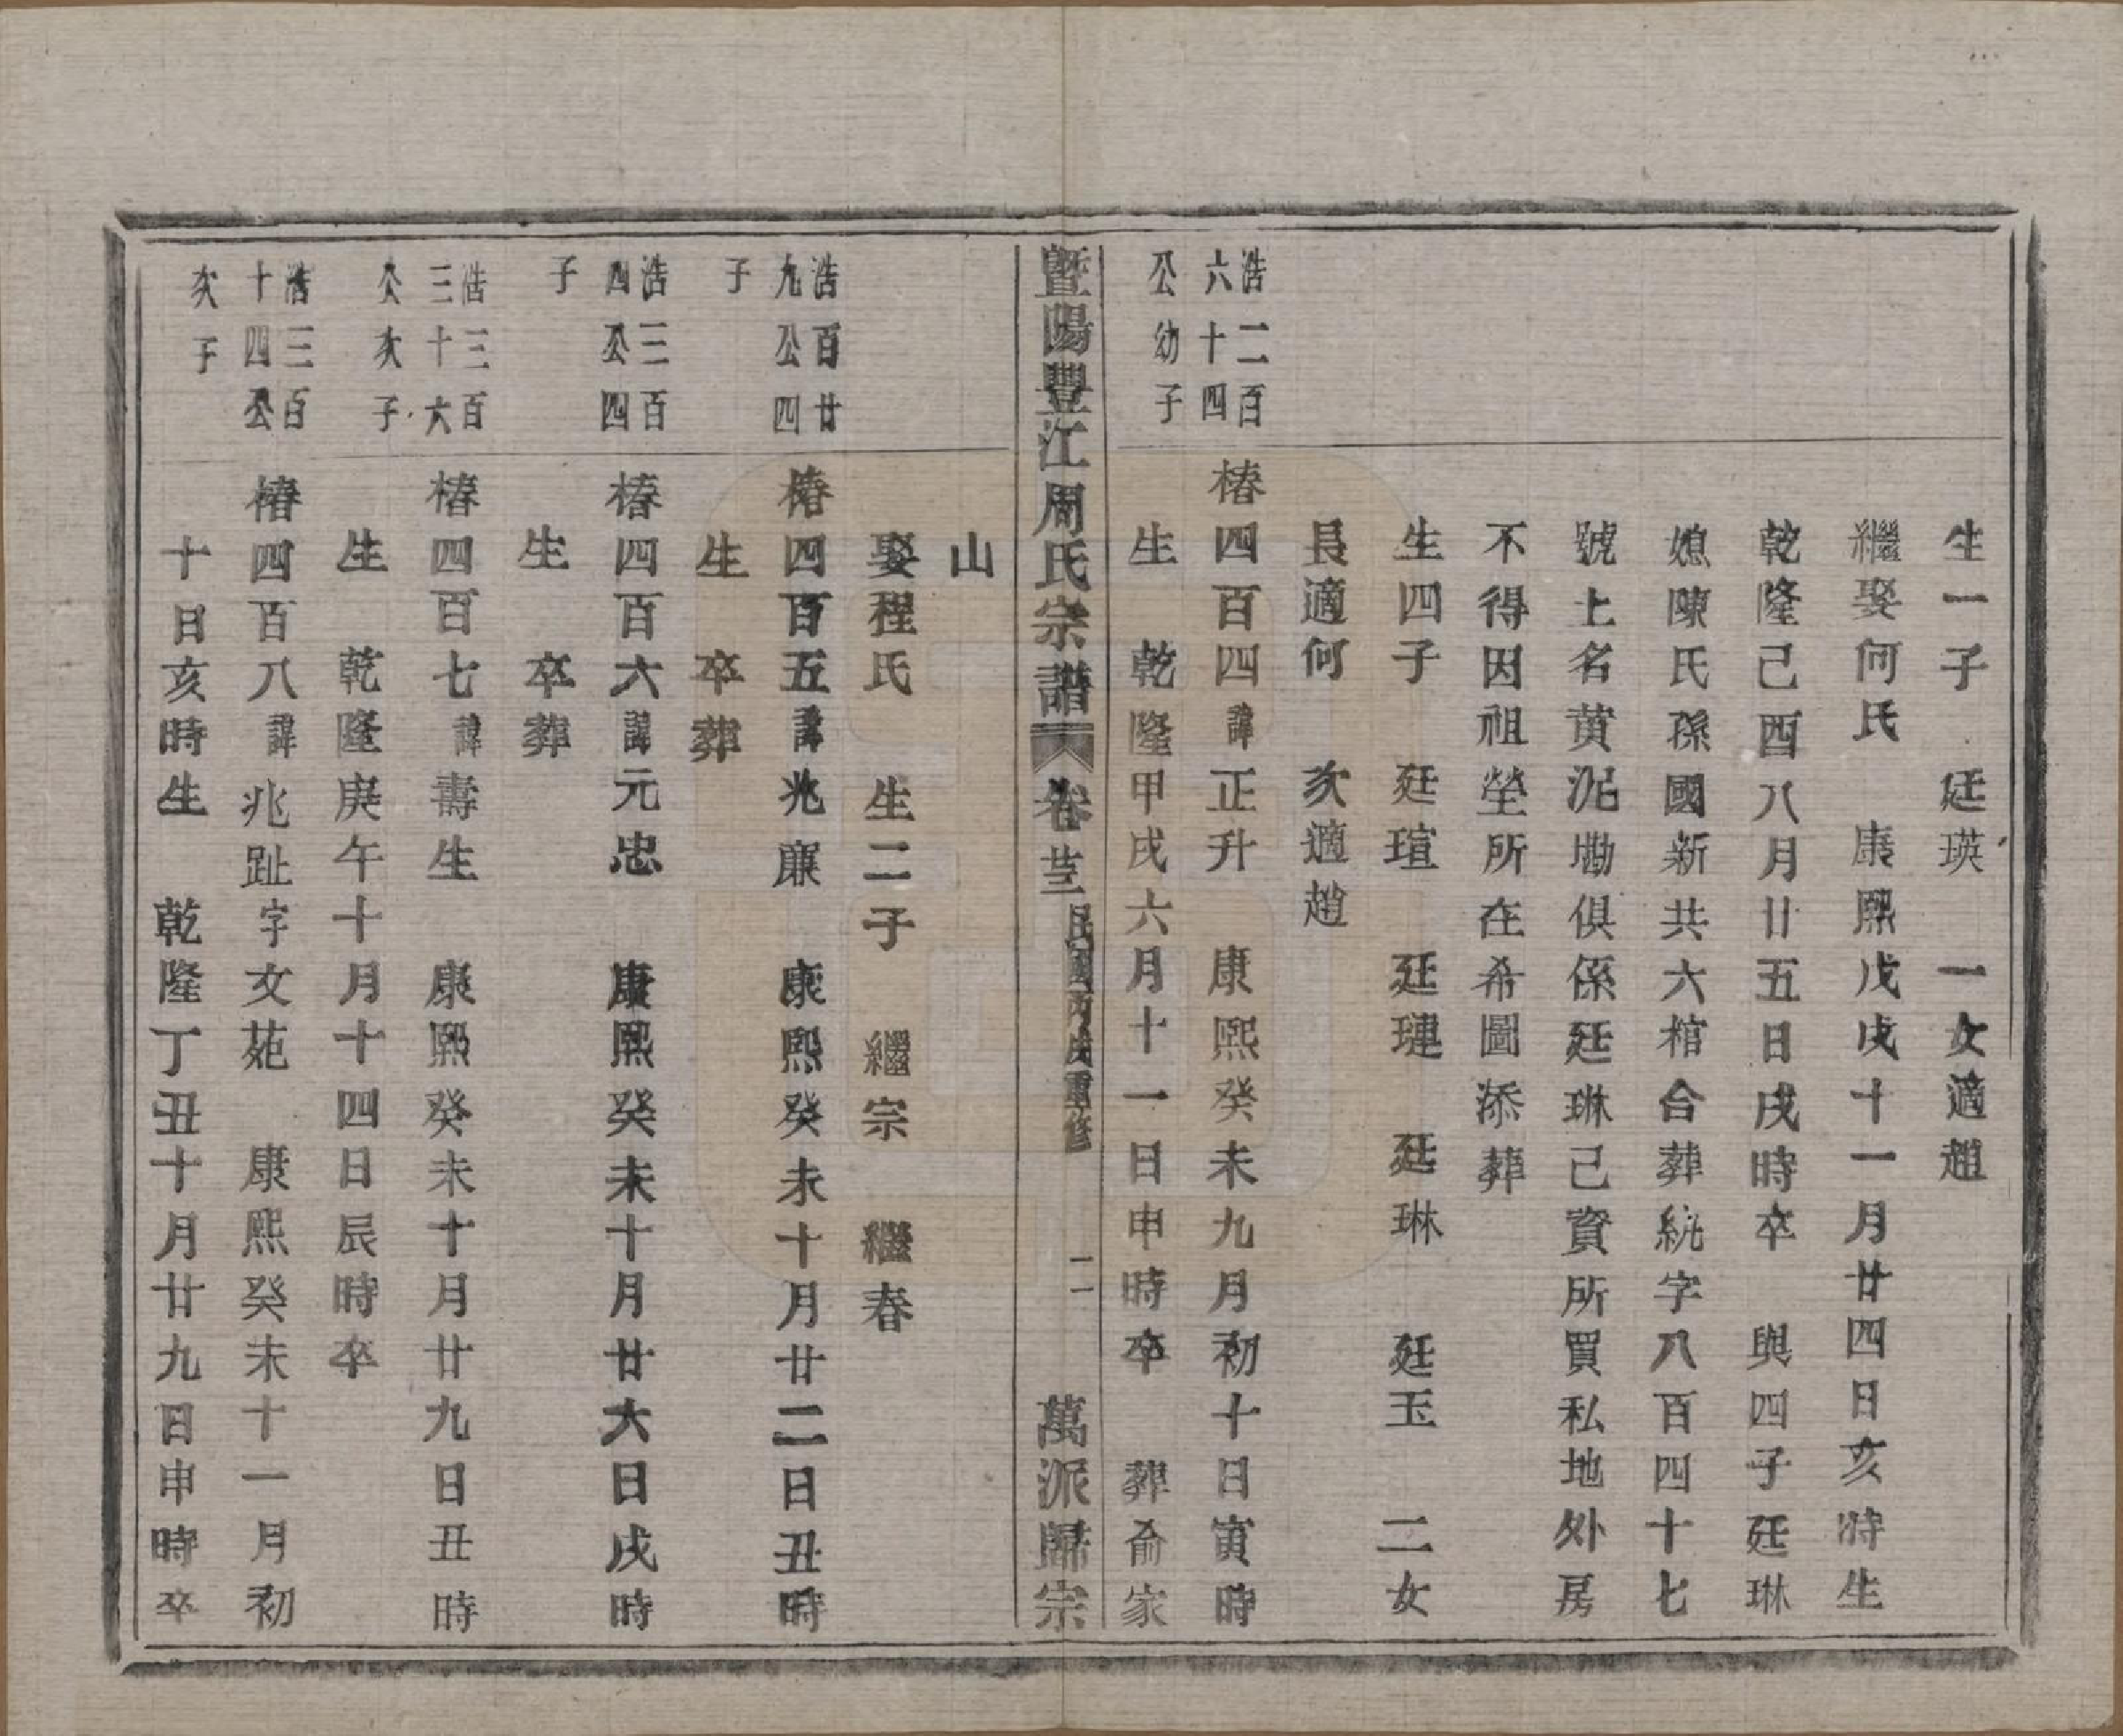 生一子　廷瑛　一女適趙
繼娶何氏　康熙戊戌十一月廿四日亥時生
乾隆己酉八月廿五日戌時卒　與四子廷琳
媳陳氏孫國新共六棺合葬統字八百四十七
號土名黄泥墈俱係廷琳己資所買私地外房
不得因祖塋所在希圖添葬
生四子　廷瑄　廷璉　廷琳　廷玉　二女
長適何　次適趙
浩二百六十四公幼子
椿四百四諱正升　康熙癸未九月初十日寅時
生　乾隆甲戌六月十一日申時卒　葬俞家
暨陽豐江周氏宗譜　卷　民國丙戌重修　二　萬派歸宗
山
娶程氏　生二子　繼宗　繼春
浩百廿九公四子
椿四百五諱兆廉　康熙癸未十月廿二日丑時
生　卒葬
浩三百四公四子
椿四百六諱元忠　康熙癸未十月廿六日戌時
生　卒葬
浩三百三十六公次子
椿四百七諱壽生　康熙癸未十月廿九日丑時
生　乾隆庚午十月十四日辰時卒
浩三百十四公次子
椿四百八諱兆趾字文苑　康熙癸未十一月初
十日亥時生　乾隆丁丑十月廿九日申時卒